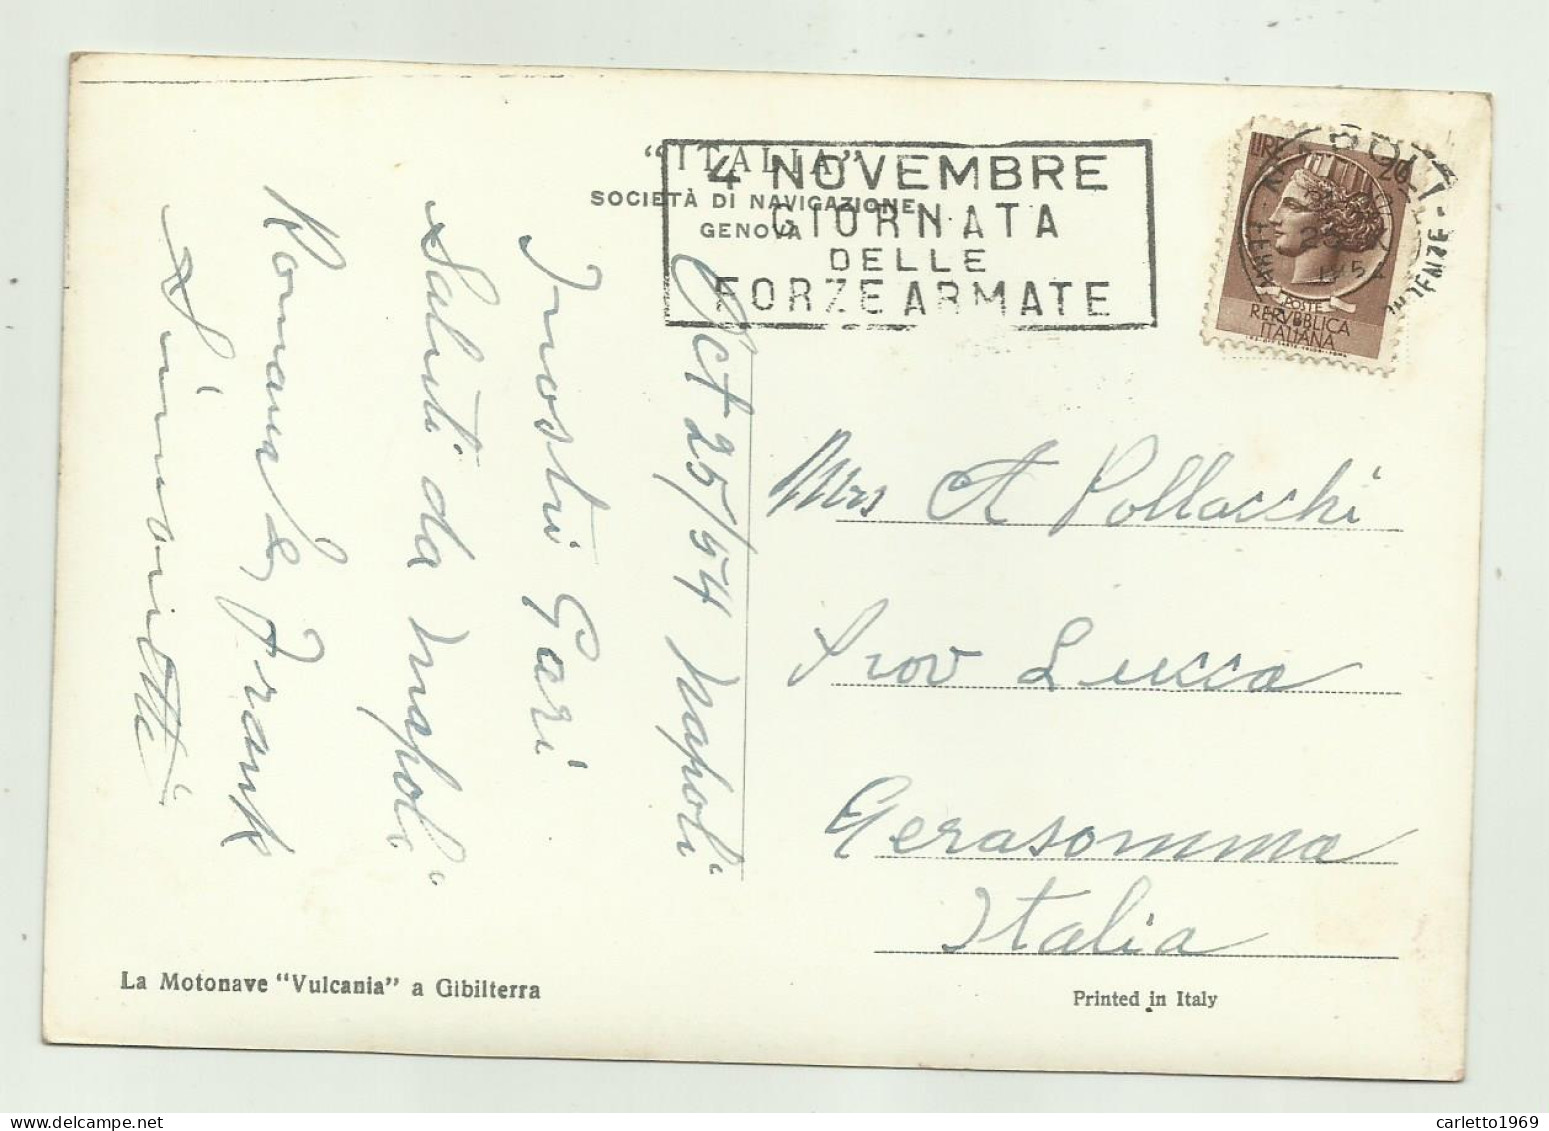 "ITALIA"
SOCIETÀ DI NAVIGAZIONE
GENOVA
4 NOVEMBRE
GIORNATA
DELLE
FORZE ARMATE
LIRE 20
1954
POSTE
REPVBBLICA
ITALIANA
Oct 25/54 Napoli
I nostri Cari
Saluti da Napoli
Romana & Frank
Simonetti
Mrs A Pollacchi
Prov Lucca
Gerasomma
Italia
La Motonave "Vulcania" a Gibilterra
Printed in Italy
carletto1969